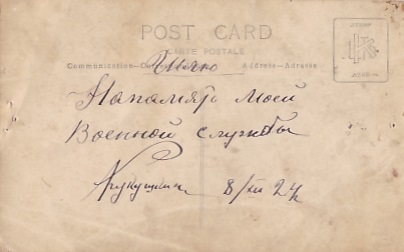 POST CARD
CARTE POSTALE
Communication—Address—Adresse
Напамять Моей
Военной службы
8/XII 24